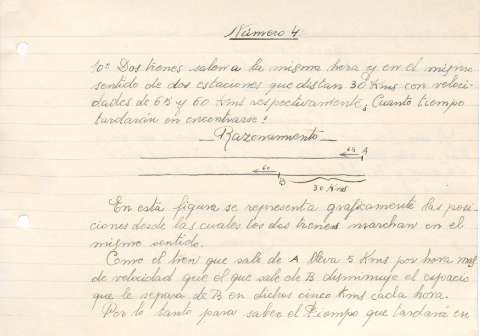 Número 4
10º Dos trenes salen a la misma hora y en el mismo
sentido de dos estaciones que distan 30 Kms con veloci-
dades de 65 y 60 Kms respectivamente, Cuanto tiempo
tardarán en encontrarse?
Razonamiento
65 A
60
B
30 Kms
En esta figura se representa graficamente las posi-
ciones desde las cuales los dos trenes marchan en el
mismo sentido.
Como el tren que sale de A lleva 5 Kms por hora mas
de velocidad que el que sale de B disminuye el espacio
que le separa de B en dichos cinco Kms cada hora.
Por lo tanto para saber el Tiempo que tardará en